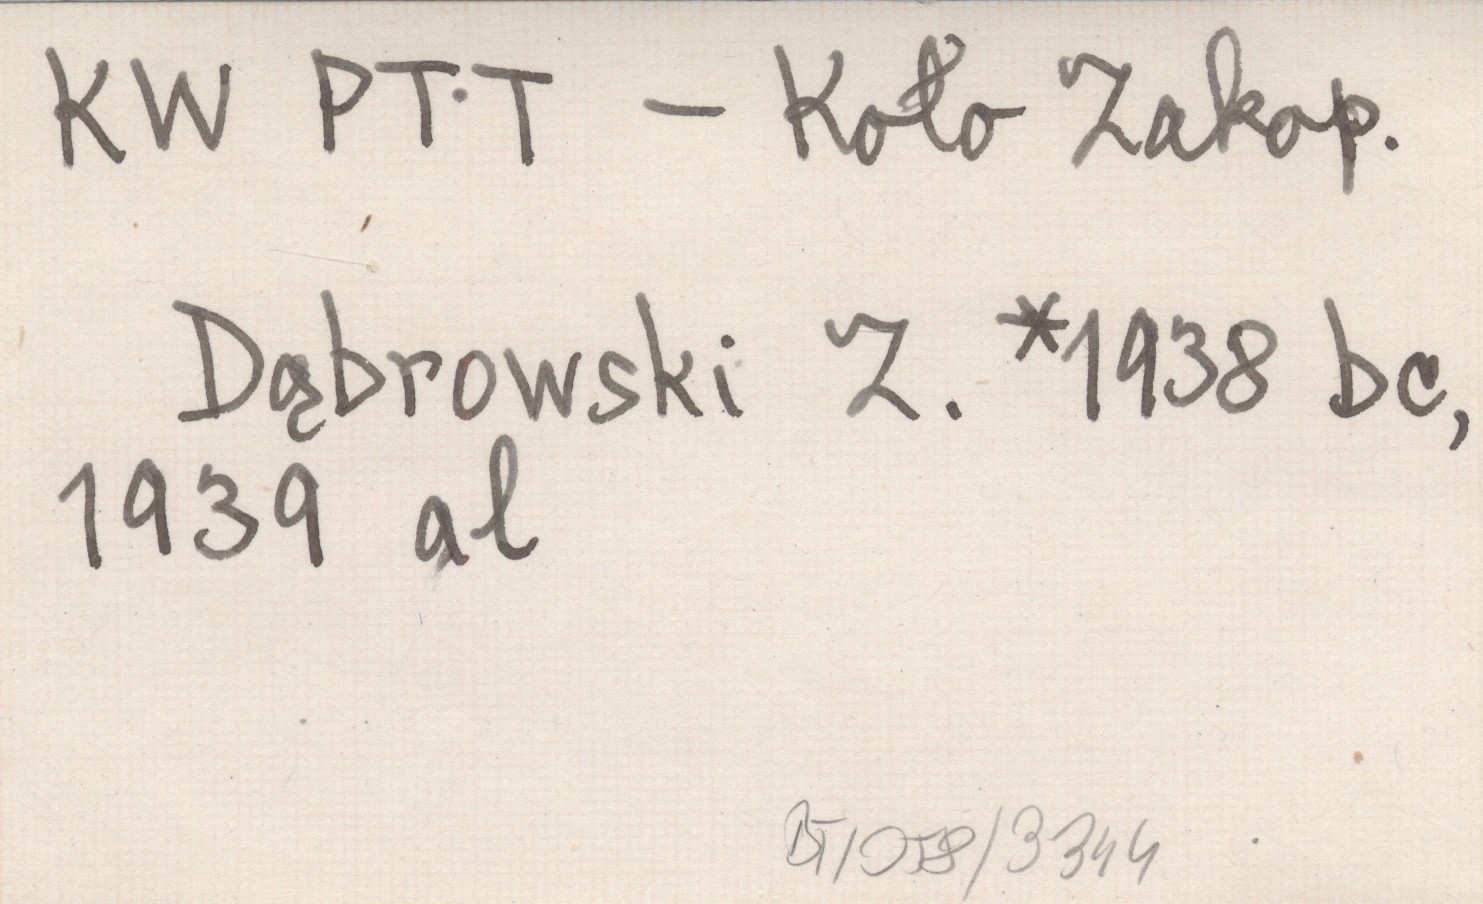 KW PTT – Koło Zakop.
Dąbrowski Z. *1938 bc,
1939 al
BT/058/3344